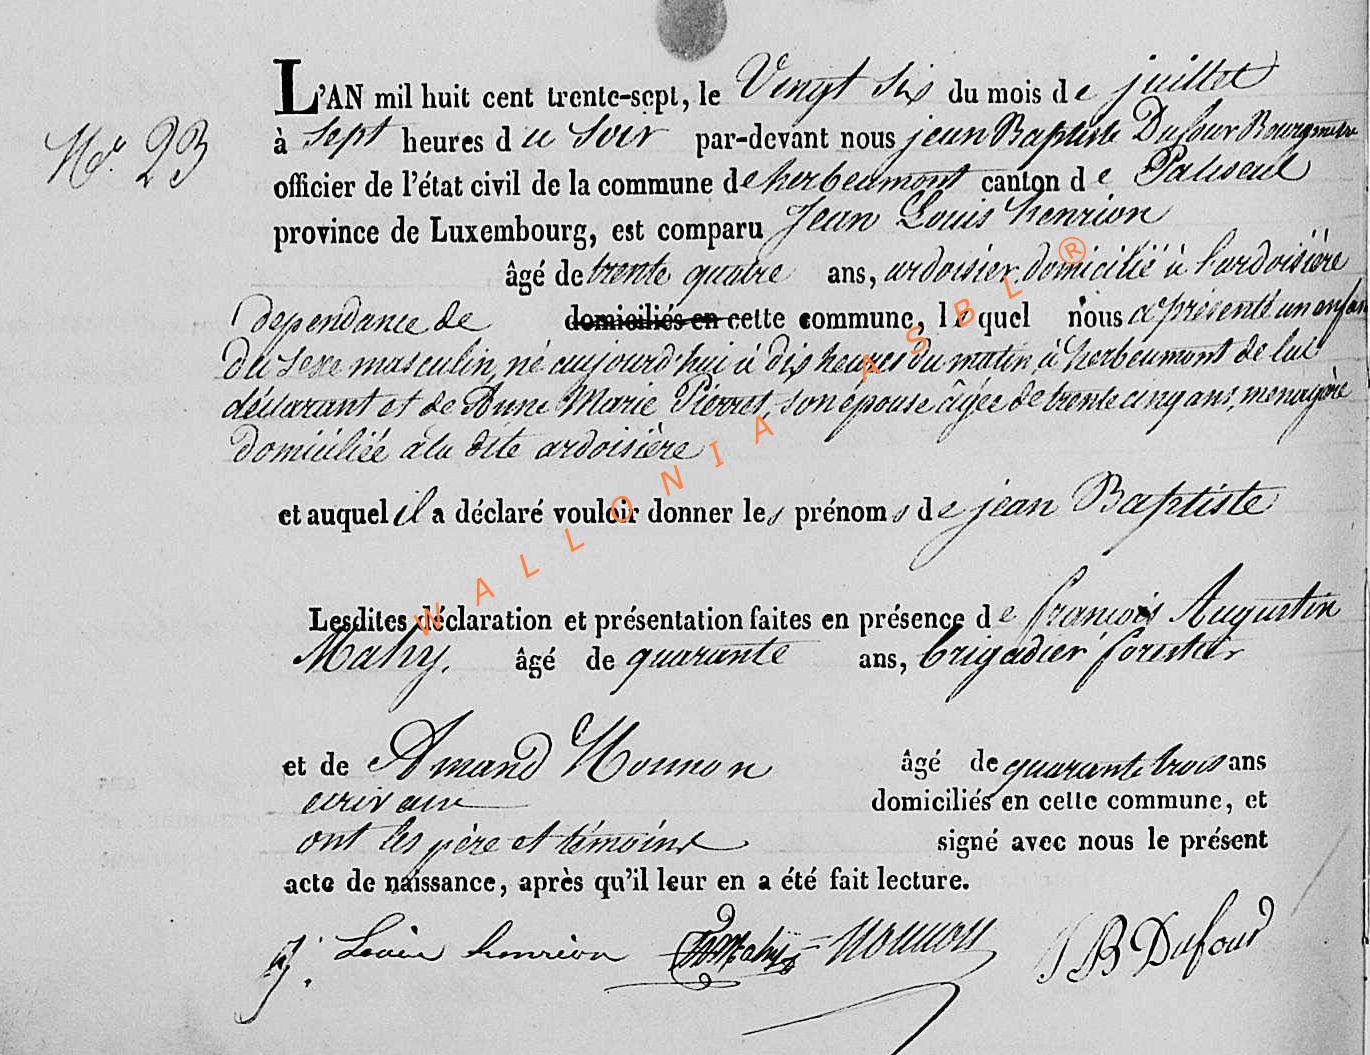 L'AN mil huit cent trente-sept, le Vingt Six du mois de juillet
N° 23
à Sept heures du Soir par-devant nous jean Baptiste Dufour Bourgmestre
officier de l'état civil de la commune de herbeumont canton de Paliseul
province de Luxembourg, est comparu Jean Louis henrion
âgé de trente quatre ans, ardoisier domicilié à l'ardoisière
dependance de domiciliés en cette commune, lequel nous a présenté un enfant
du sexe masculin, né aujourd'hui à dix heures du matin, à herbeumont de lui
déclarant et de Anne Marie Pierret, son épouse âgée de trente cinq ans, menagère
domiciliée à la dite ardoisière
et auquel il a déclaré vouloir donner les prénoms de jean Baptiste
Lesdites déclaration et présentation faites en présence de françois Augustin
Mahy. âgé de quarante ans, brigadier forestier
et de Amand Noumon âgé de quarante trois ans
ecrivain domiciliés en cette commune, et
ont les père et témoins signé avec nous le présent
acte de naissance, après qu'il leur en a été fait lecture.
j. Louis henrion Mahy Noumon J B Dufour
WALLONIA ASBL ®